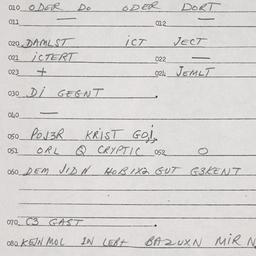 010 ODER DO ODER DORT
011 — 012 —
020 DAMLST ICT JECT
021 ICTERT 022 —
023 + 024 JEMLT
030 DI GEGNT
040 —
050 POJ3R KRIST GO!
051 ORL Q CRYPTIC 052 O
060 DEM JIDN HOBIX2 GUT G3KENT
070 C3 GAST
080 KEJN MOL IN LEBT BA2UXN MIR N